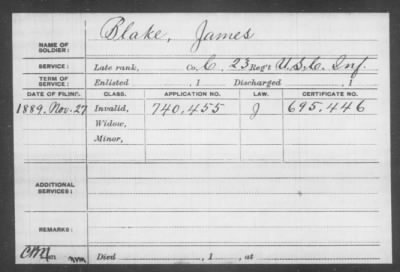 Blake, James
NAME OF SOLDIER:
SERVICE: Late rank, Co. C, 23 Reg't U.S.C. Inf.
TERM OF SERVICE: Enlisted , 1 Discharged , 1
DATE OF FILING. CLASS. APPLICATION NO. LAW. CERTIFICATE NO.
1889. Nov. 27 Invalid, 740.455 J 695.446
Widow,
Minor,
ADDITIONAL SERVICES:
REMARKS:
Died , 1 , at